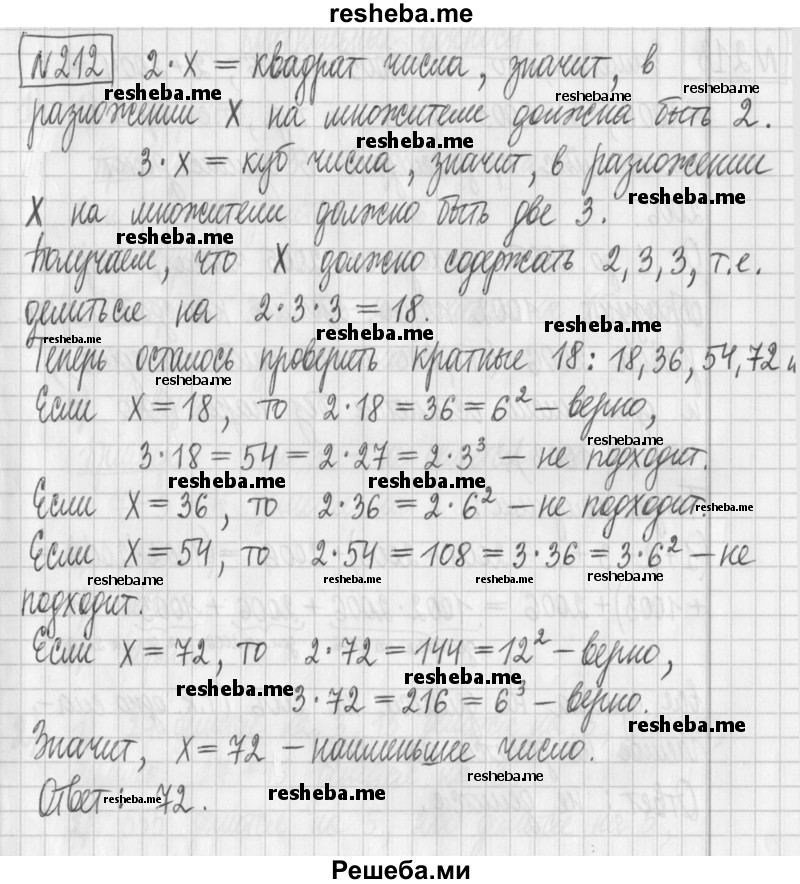 resheba.me
№212 2·x = квадрат числа, значит, в
resheba.me resheba.me resheba.me
разложении x на множители должна быть 2.
resheba.me
3·x = куб числа, значит, в разложении
resheba.me
x на множители должно быть две 3.
resheba.me
Получаем, что x должно содержать 2,3,3, т.е.
делиться на 2·3·3 = 18.
resheba.me resheba.me resheba.me
Теперь осталось проверить кратные 18: 18, 36, 54, 72 и
resheba.me
Если x = 18, то 2·18 = 36 = 6² – верно,
resheba.me
3·18 = 54 = 2·27 = 2·3³ – не подходит.
resheba.me resheba.me
Если x = 36, то 2·36 = 2·6² – не подходит.
resheba.me
Если x = 54, то 2·54 = 108 = 3·36 = 3·6² – не
resheba.me resheba.me resheba.me resheba.me
подходит.
Если x = 72, то 2·72 = 144 = 12² – верно,
resheba.me
resheba.me
3·72 = 216 = 6³ – верно.
resheba.me
Значит, x = 72 – наименьшее число.
resheba.me
Ответ: 72.
resheba.me resheba.me
Решеба.ми